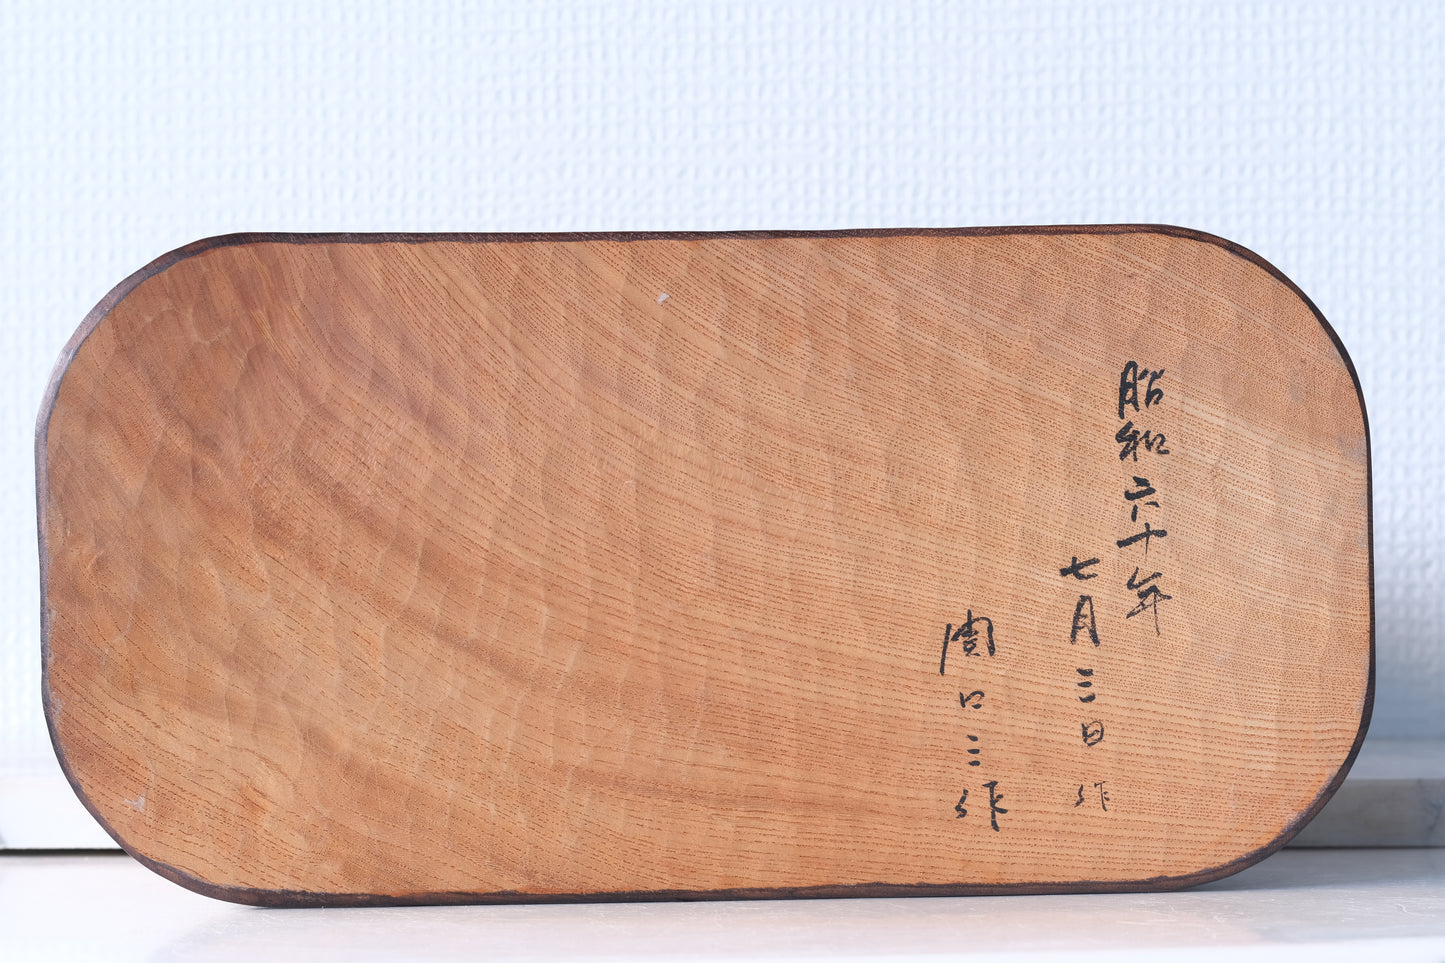 昭和六十年
七月三日作
関口三作